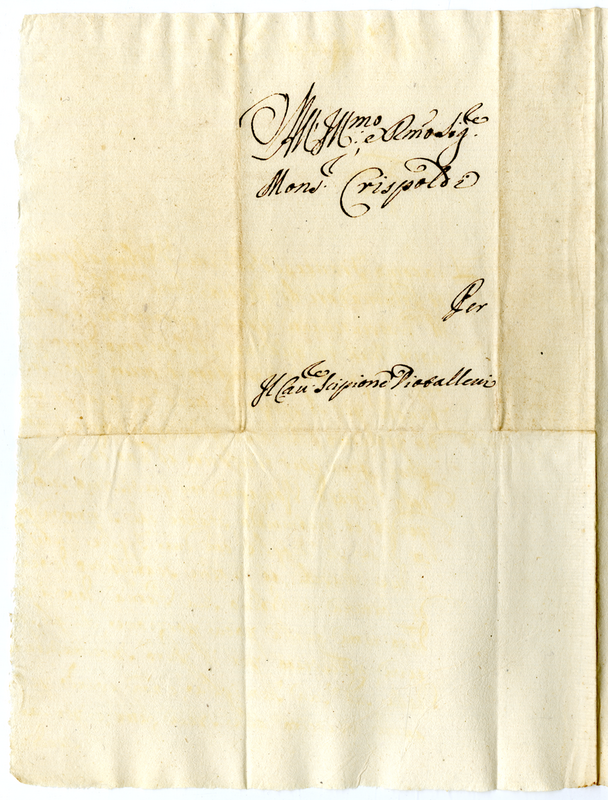 All' Ill:mo e Rmo Sig:re
Mons:r Crispoldi
Per
Il Cau:re Scipione Dioballeui